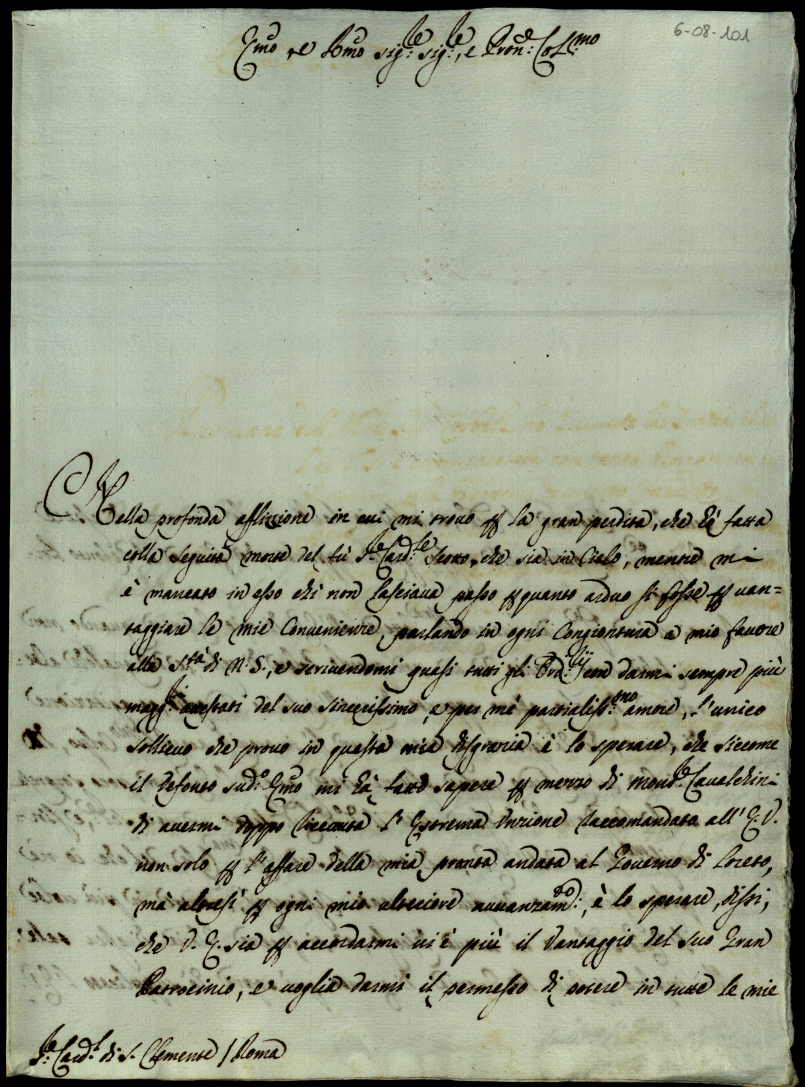 6-08-101
Emo e Rmo sig:re sig:re, e Pron: Colmo
Nella profonda afflizione in cui mi trovo per la gran perdita, che hò fatta
colla seguita morte del fù Sr Card:le Scotto, che sia in Cielo, mentre mi
è mancato in esso chi non lasciava passo per quanto arduo si fosse per van=
taggiare le mie Convenienze, parlando in ogni Congiontura a mio favore
alla Stà di N.S., e scrivendomi quasi tutti gli Ord:rij con darmi sempre più
magg:ri attestati del suo sincerissimo, e per mè parzialiss:mo amore, l'unico
sollievo che provo in questa mia disgrazia è lo sperare, che siccome
il defonto sud:o Emo mi hà fatto sapere per mezzo di Mons:r Cavalchini
di avermi doppo ricevuta l'Estrema Unzione raccomandato all'E.V.
non solo per l'affare della mia pronta andata al Governo di Loreto,
mà altresì per ogni mio ulteriore avvanzam:to, è lo sperare, dissi,
che V.E. sia per accordarmi vi è più il vantaggio del suo Gran
Patrocinio, e voglia darmi il permesso di potere in tutte le mie
Sr: Card:l di S. Clemente / Roma